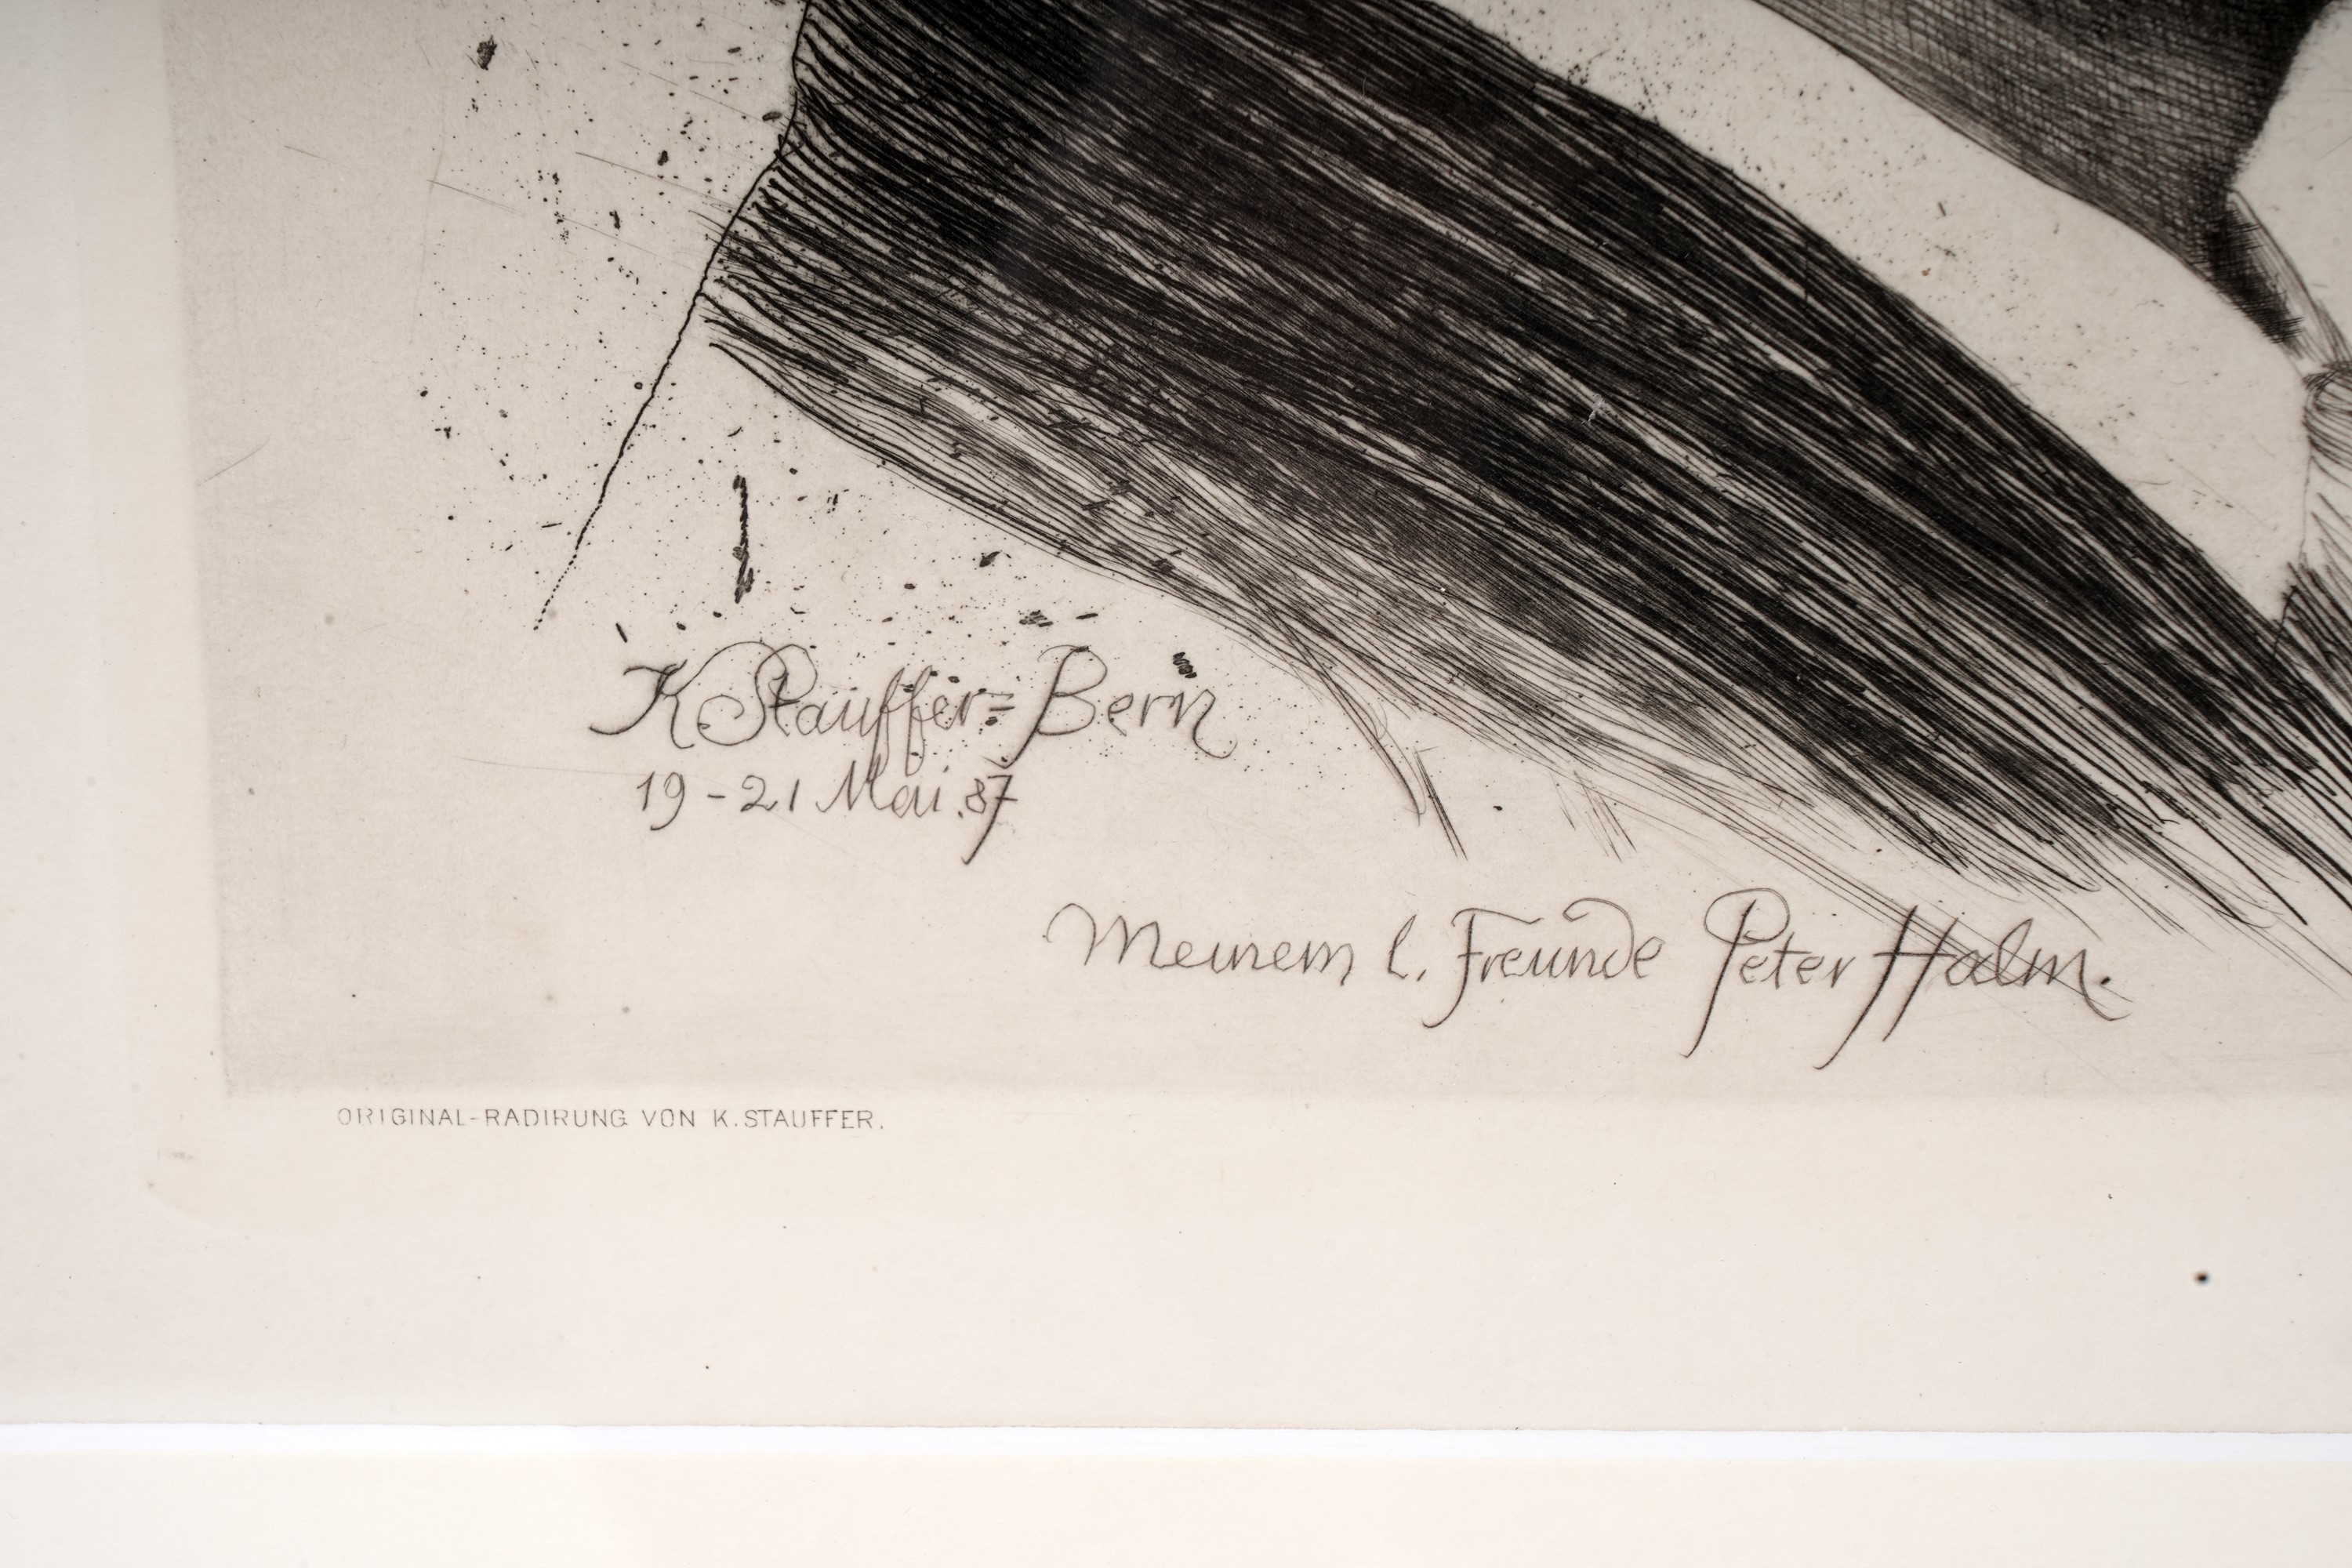 K Stauffer=Bern
19-21 Mai.87
Meinem l. Freunde Peter Halm.
ORIGINAL-RADIRUNG VON K.STAUFFER.